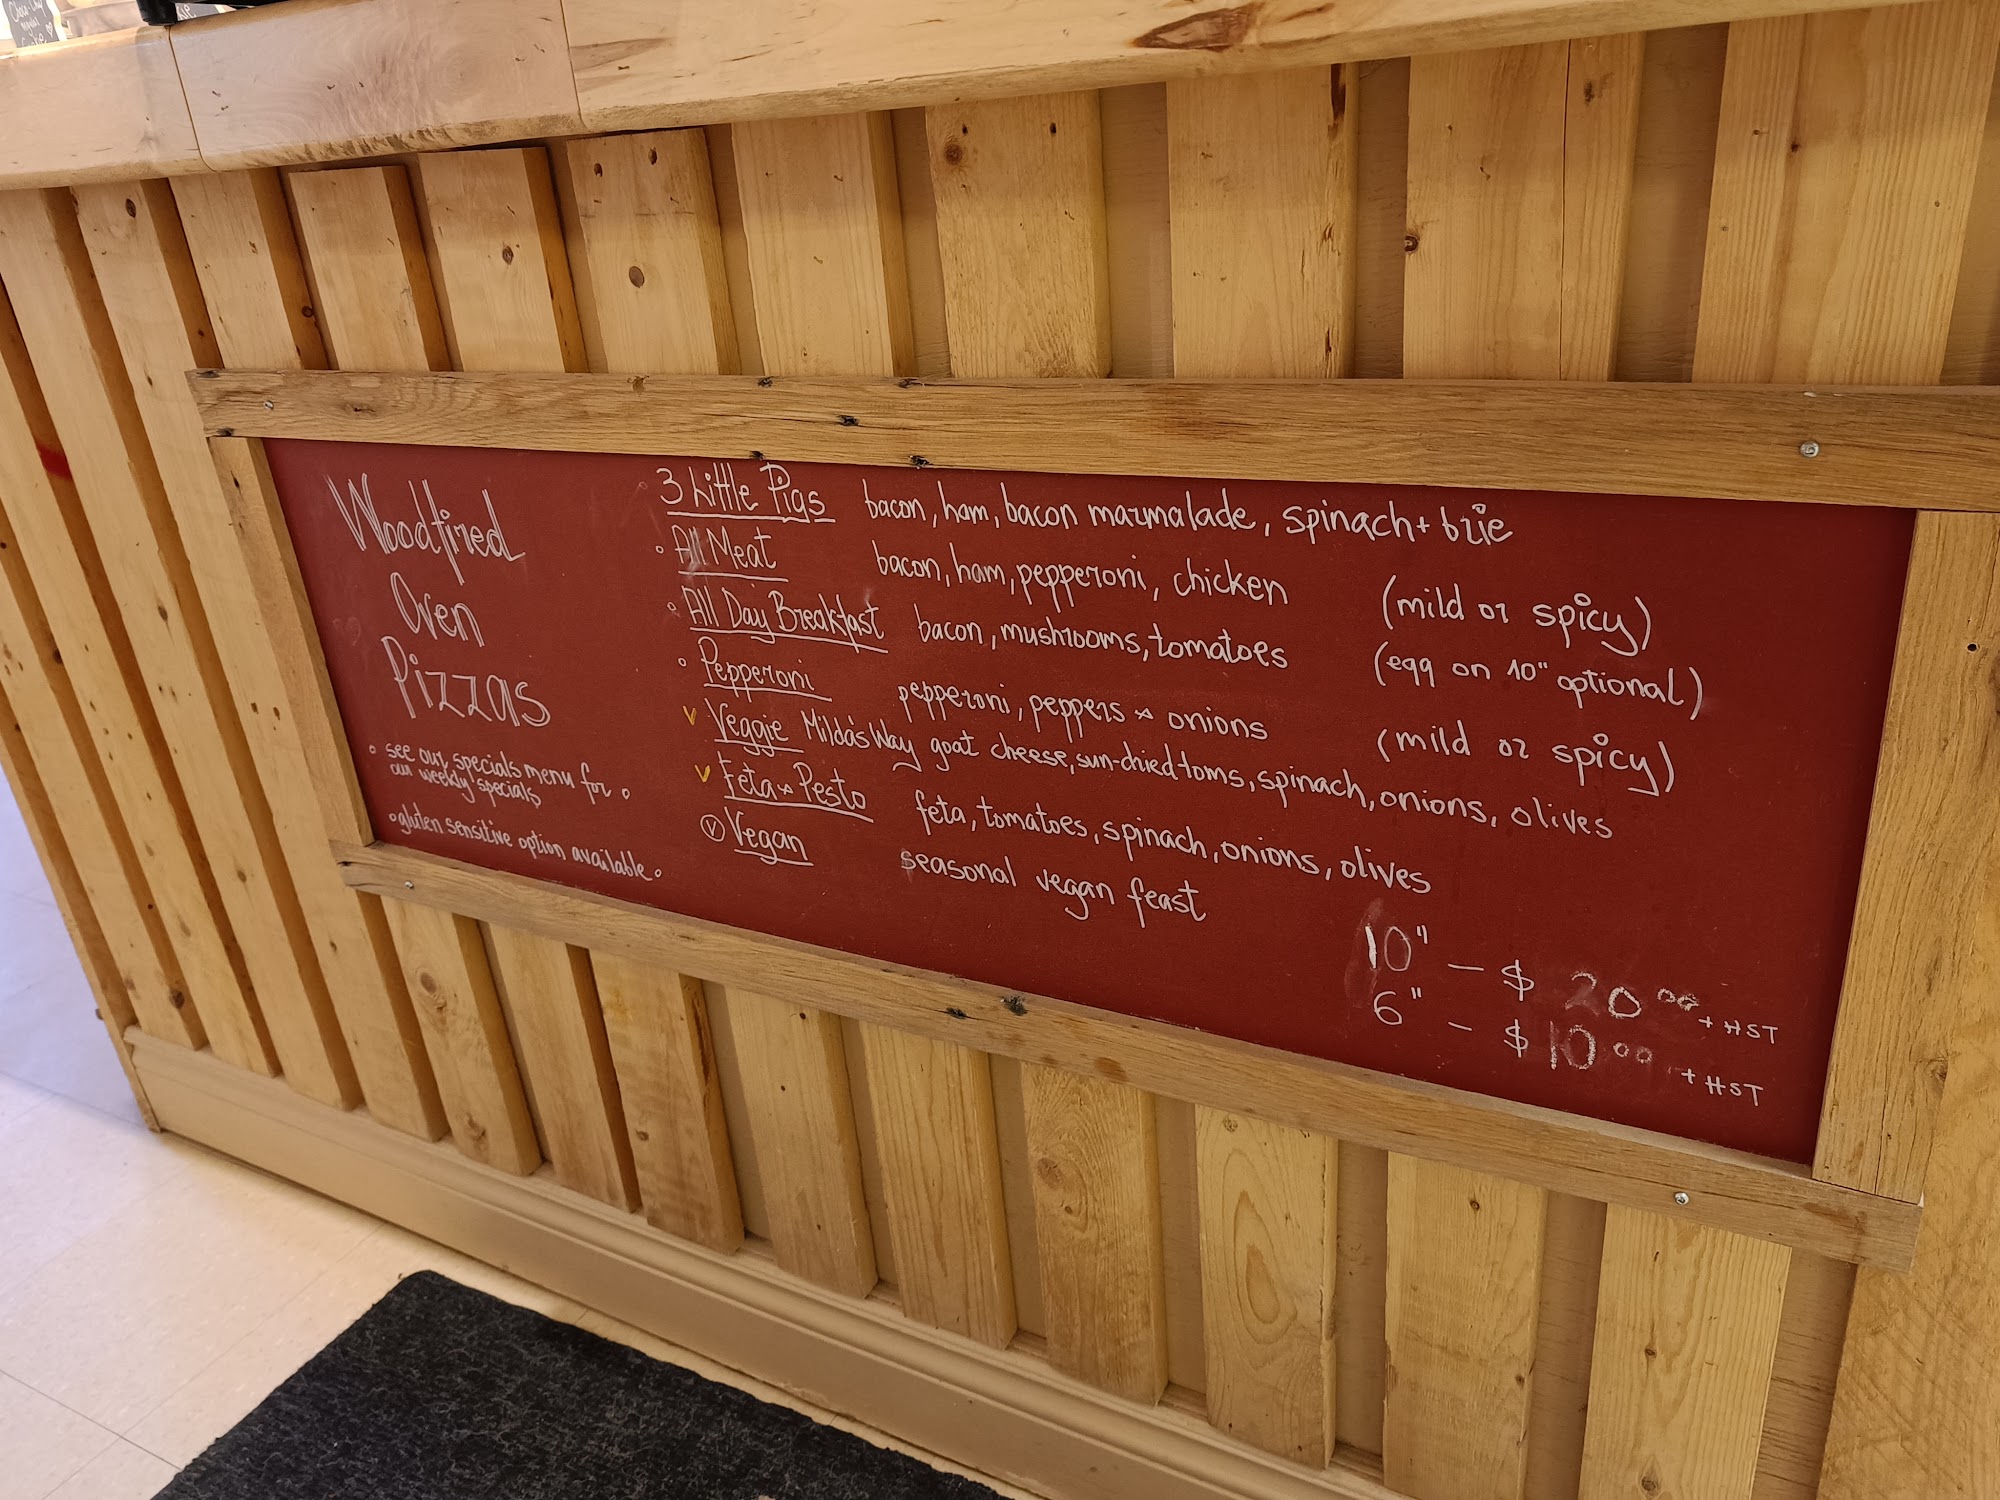 Choc-Chip
Woodfired
Oven
Pizzas
° see our specials menu for °
our weekly specials
° gluten sensitive option available °
° 3 Little Pigs bacon, ham, bacon marmalade, spinach + brie
° All Meat bacon, ham, pepperoni, chicken (mild or spicy)
° All Day Breakfast bacon, mushrooms, tomatoes (egg on 10" optional)
° Pepperoni pepperoni, peppers & onions (mild or spicy)
V Veggie Milda's Way goat cheese, sun-dried toms, spinach, onions, olives
V Feta & Pesto feta, tomatoes, spinach, onions, olives
Ⓥ Vegan seasonal vegan feast
10" - $ 20.00 + HST
6" - $ 10.00 + HST